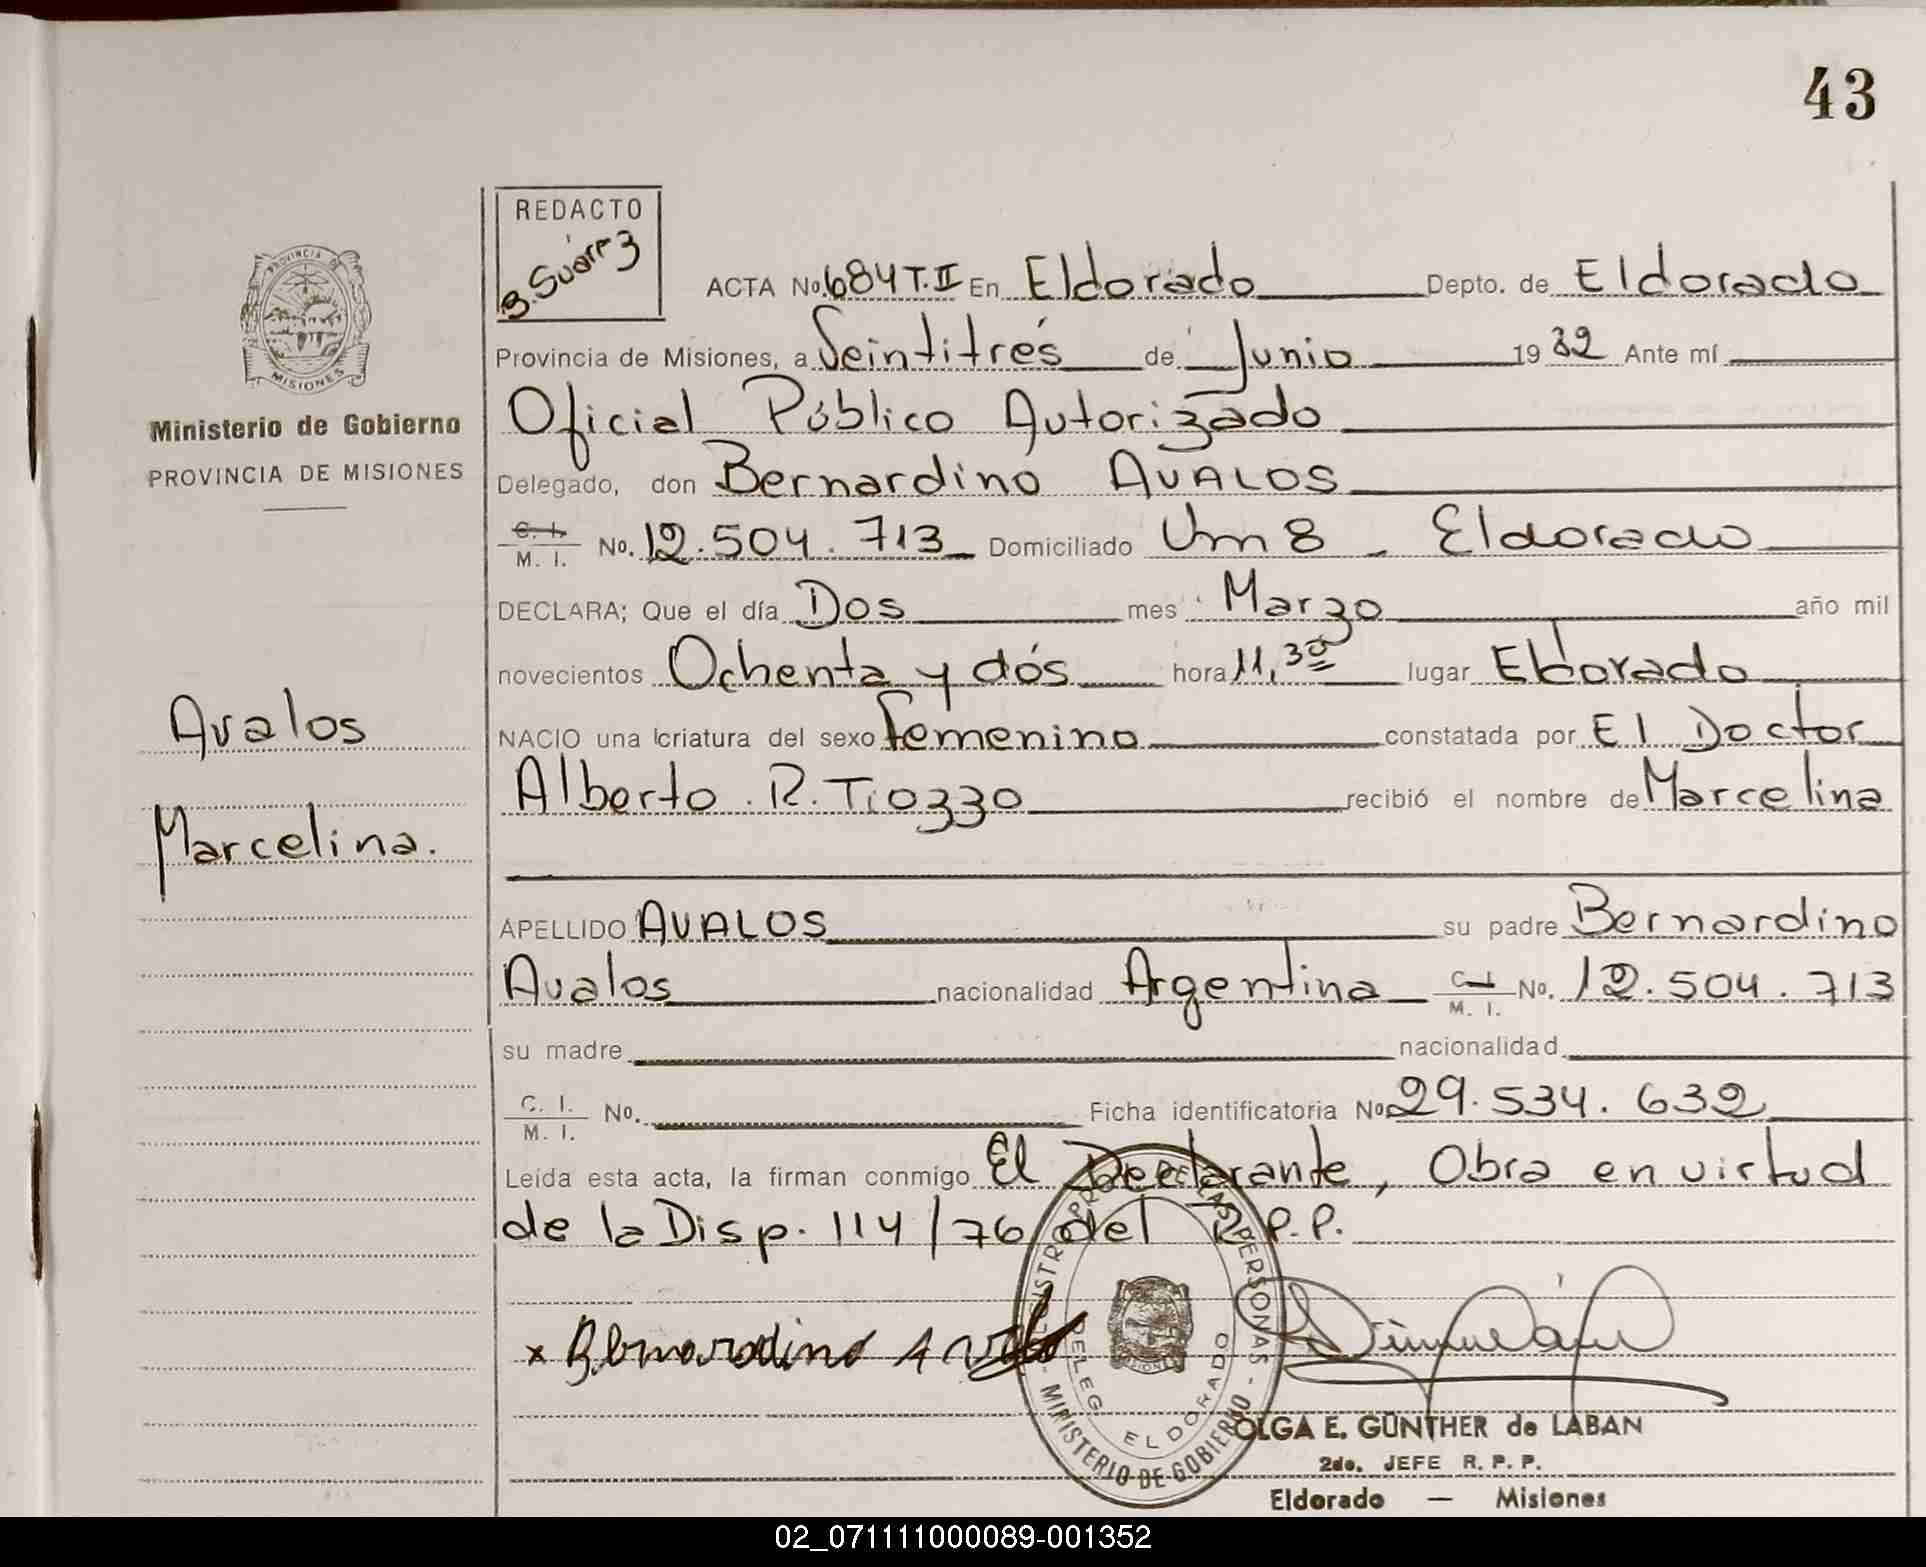 43
REDACTO
B. Suárez
PROVINCIA DE
MISIONES
Ministerio de Gobierno
PROVINCIA DE MISIONES
Avalos
Marcelina.
ACTA No. 684 T. II En Eldorado Depto. de Eldorado
Provincia de Misiones, a Veintitrés de Junio 19 82 Ante mí
Oficial Público Autorizado
Delegado, don Bernardino AVALOS
C. I. M. I. No. 12.504.713 Domiciliado Km 8 - Eldorado
DECLARA; Que el día Dos mes Marzo año mil
novecientos Ochenta y dós hora 11,30 lugar Eldorado
NACIO una criatura del sexo femenino constatada por El Doctor
Alberto . R. Tiozzo recibió el nombre de Marcelina
APELLIDO AVALOS su padre Bernardino
Avalos nacionalidad Argentina C. I. M. I. No. 12.504.713
su madre nacionalidad
C. I. M. I. No. Ficha identificatoria No. 29.534.632
Leída esta acta, la firman conmigo El Declarante, Obra en virtud
de la Disp. 114/76 del R.P.P.
x Bernardino Avalos
MINISTERIO DE GOBIERNO
DELEG. ELDORADO
OLGA E. GÜNTHER de LABAN
2do. JEFE R. P. P.
Eldorado — Misiones
02_071111000089-001352